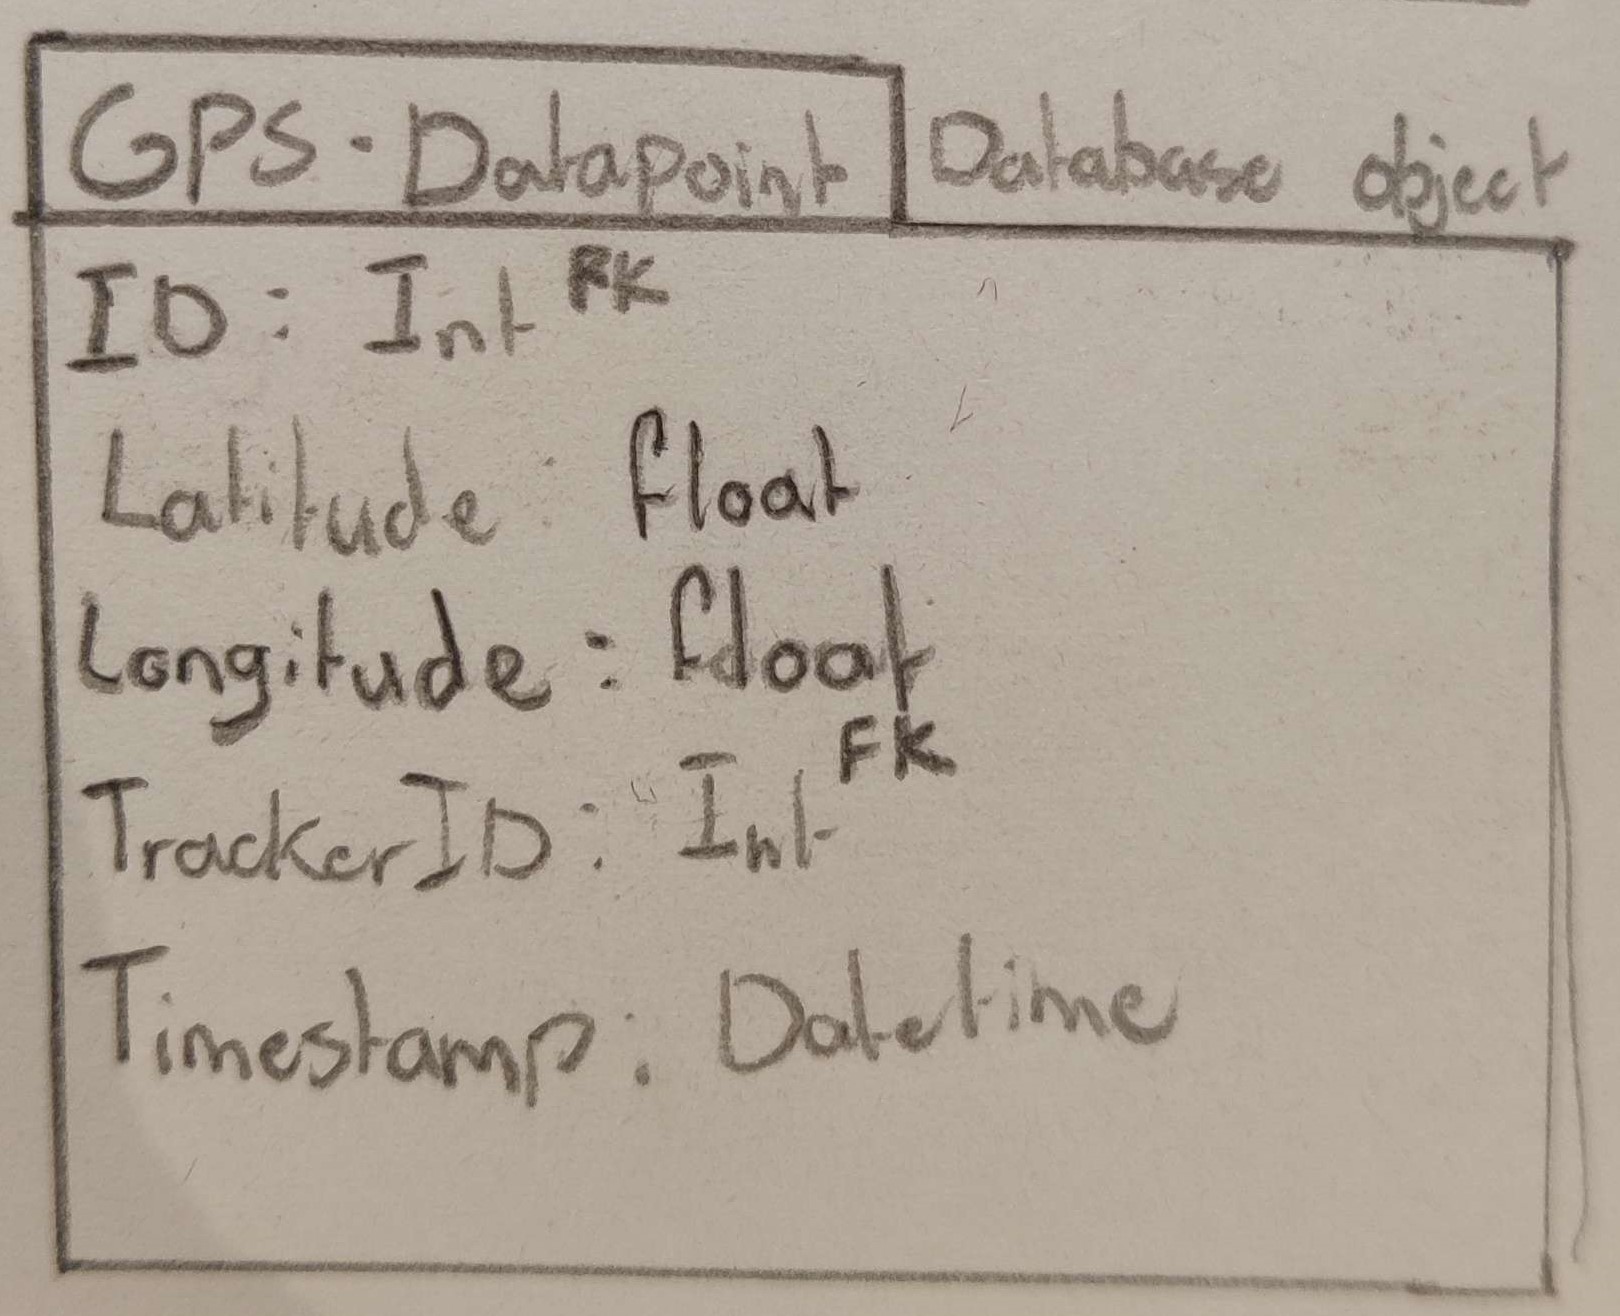 GPS-Datapoint Database object
ID: Int
Latitude: float
Longitude: float
TrackerID: Int FK
Timestamp: Datetime